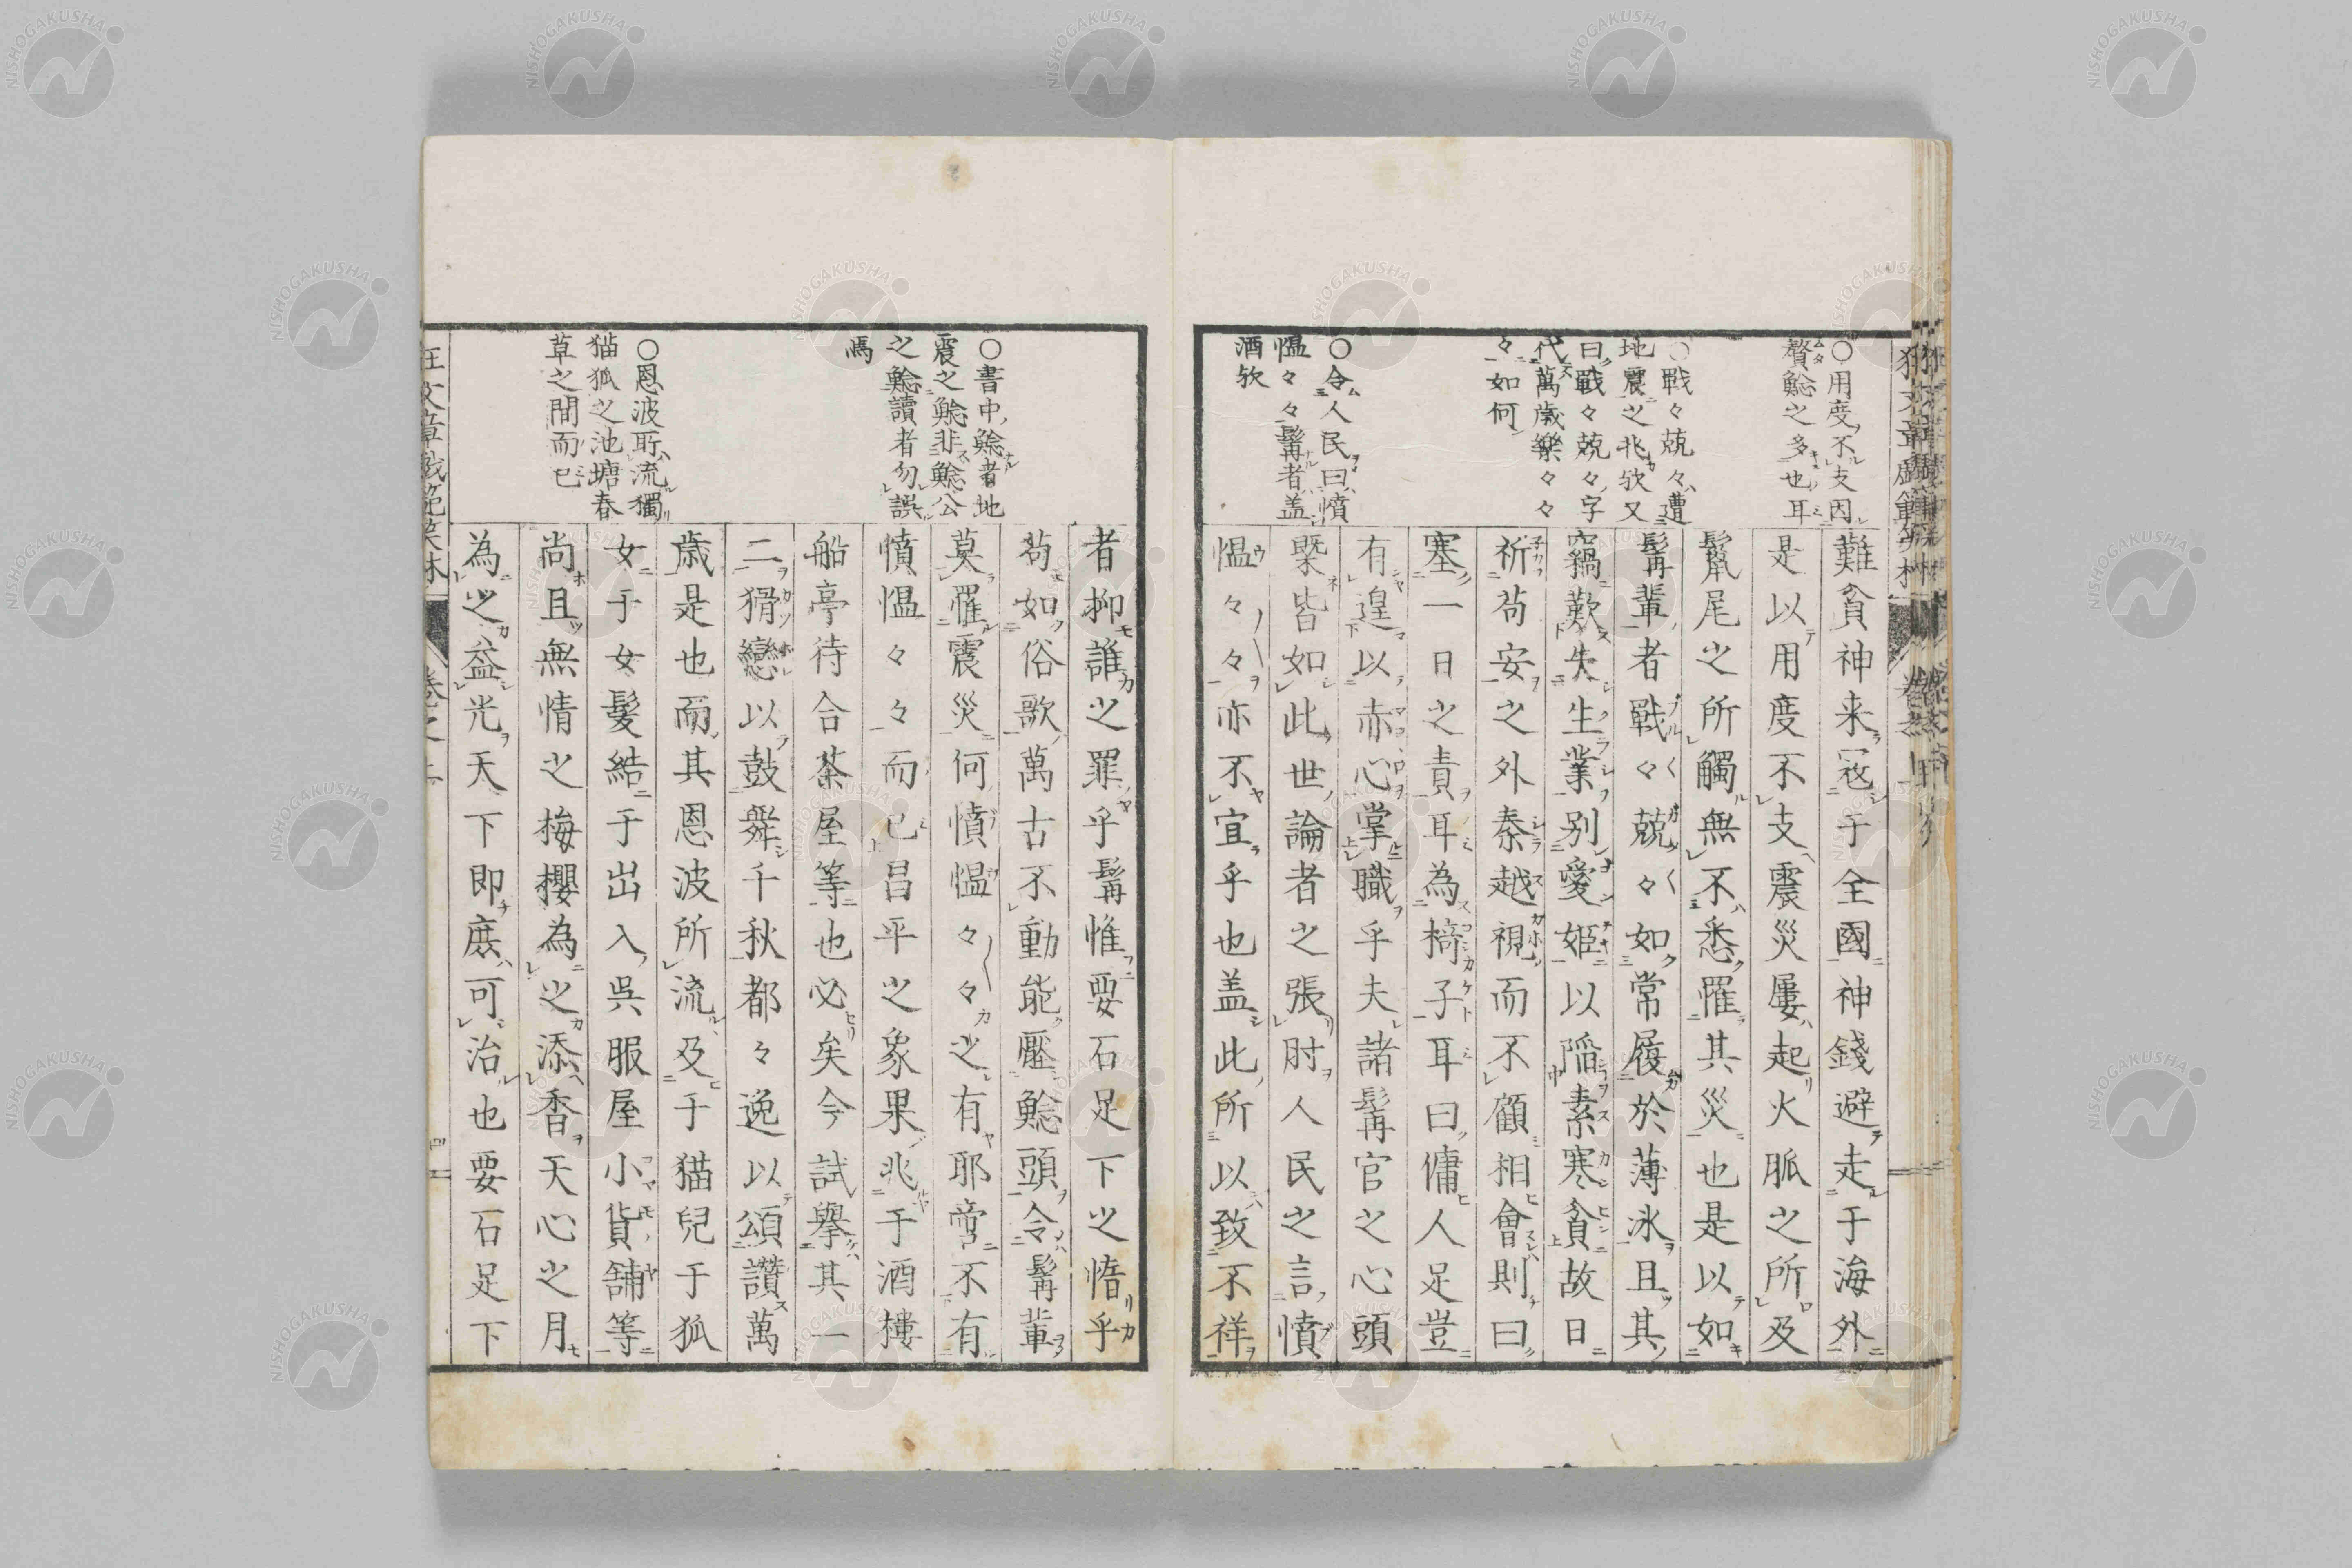 〇用度不支因
贅鯰之多也耳
〇戰々兢々遭
地震之兆欤又
曰戰々兢々字
代萬歳樂々々
々如何
〇令人民曰憤
愠々々髯者盖
酒欤
難貧神来寇于全國神錢避走于海外
是以用度不支震災屢起火脈之所及
鬣尾之所觸無不悉罹其災也是以如
髯輩者戰々兢々如常履於薄冰且其
竊歎失生業別愛姫以陥素寒貧故日
祈苟安之外秦越視而不顧相會則曰
塞一日之責耳為椅子耳曰傭人足豈
有遑以赤心掌職乎夫諸髯官之心頭
槩皆如此世論者之張肘人民之言憤
愠々々亦不宜乎也盖此所以致不祥
〇書中鯰者地
震之鯰非鯰公
之鯰讀者勿誤
焉
〇恩波所流獨
猫狐之池塘春
草之間而已
者抑誰之罪乎髯惟要石足下之惰乎
苟如俗歌萬古不動能壓鯰頭令髯輩
莫罹震災何憤愠々々之有耶啻不有
憤愠々々而已昌平之象果兆于酒樓
船亭待合茶屋等也必矣今試擧其一
二猾戀以鼓舞千秋都々逸以頌讚萬
歳是也而其恩波所流及于猫兒于狐
女于女髪結于出入呉服屋小貨舗等
尚且無情之梅櫻為之添香天心之月
為之益光天下即庶可治也要石足下
NISHOGAKUSHA